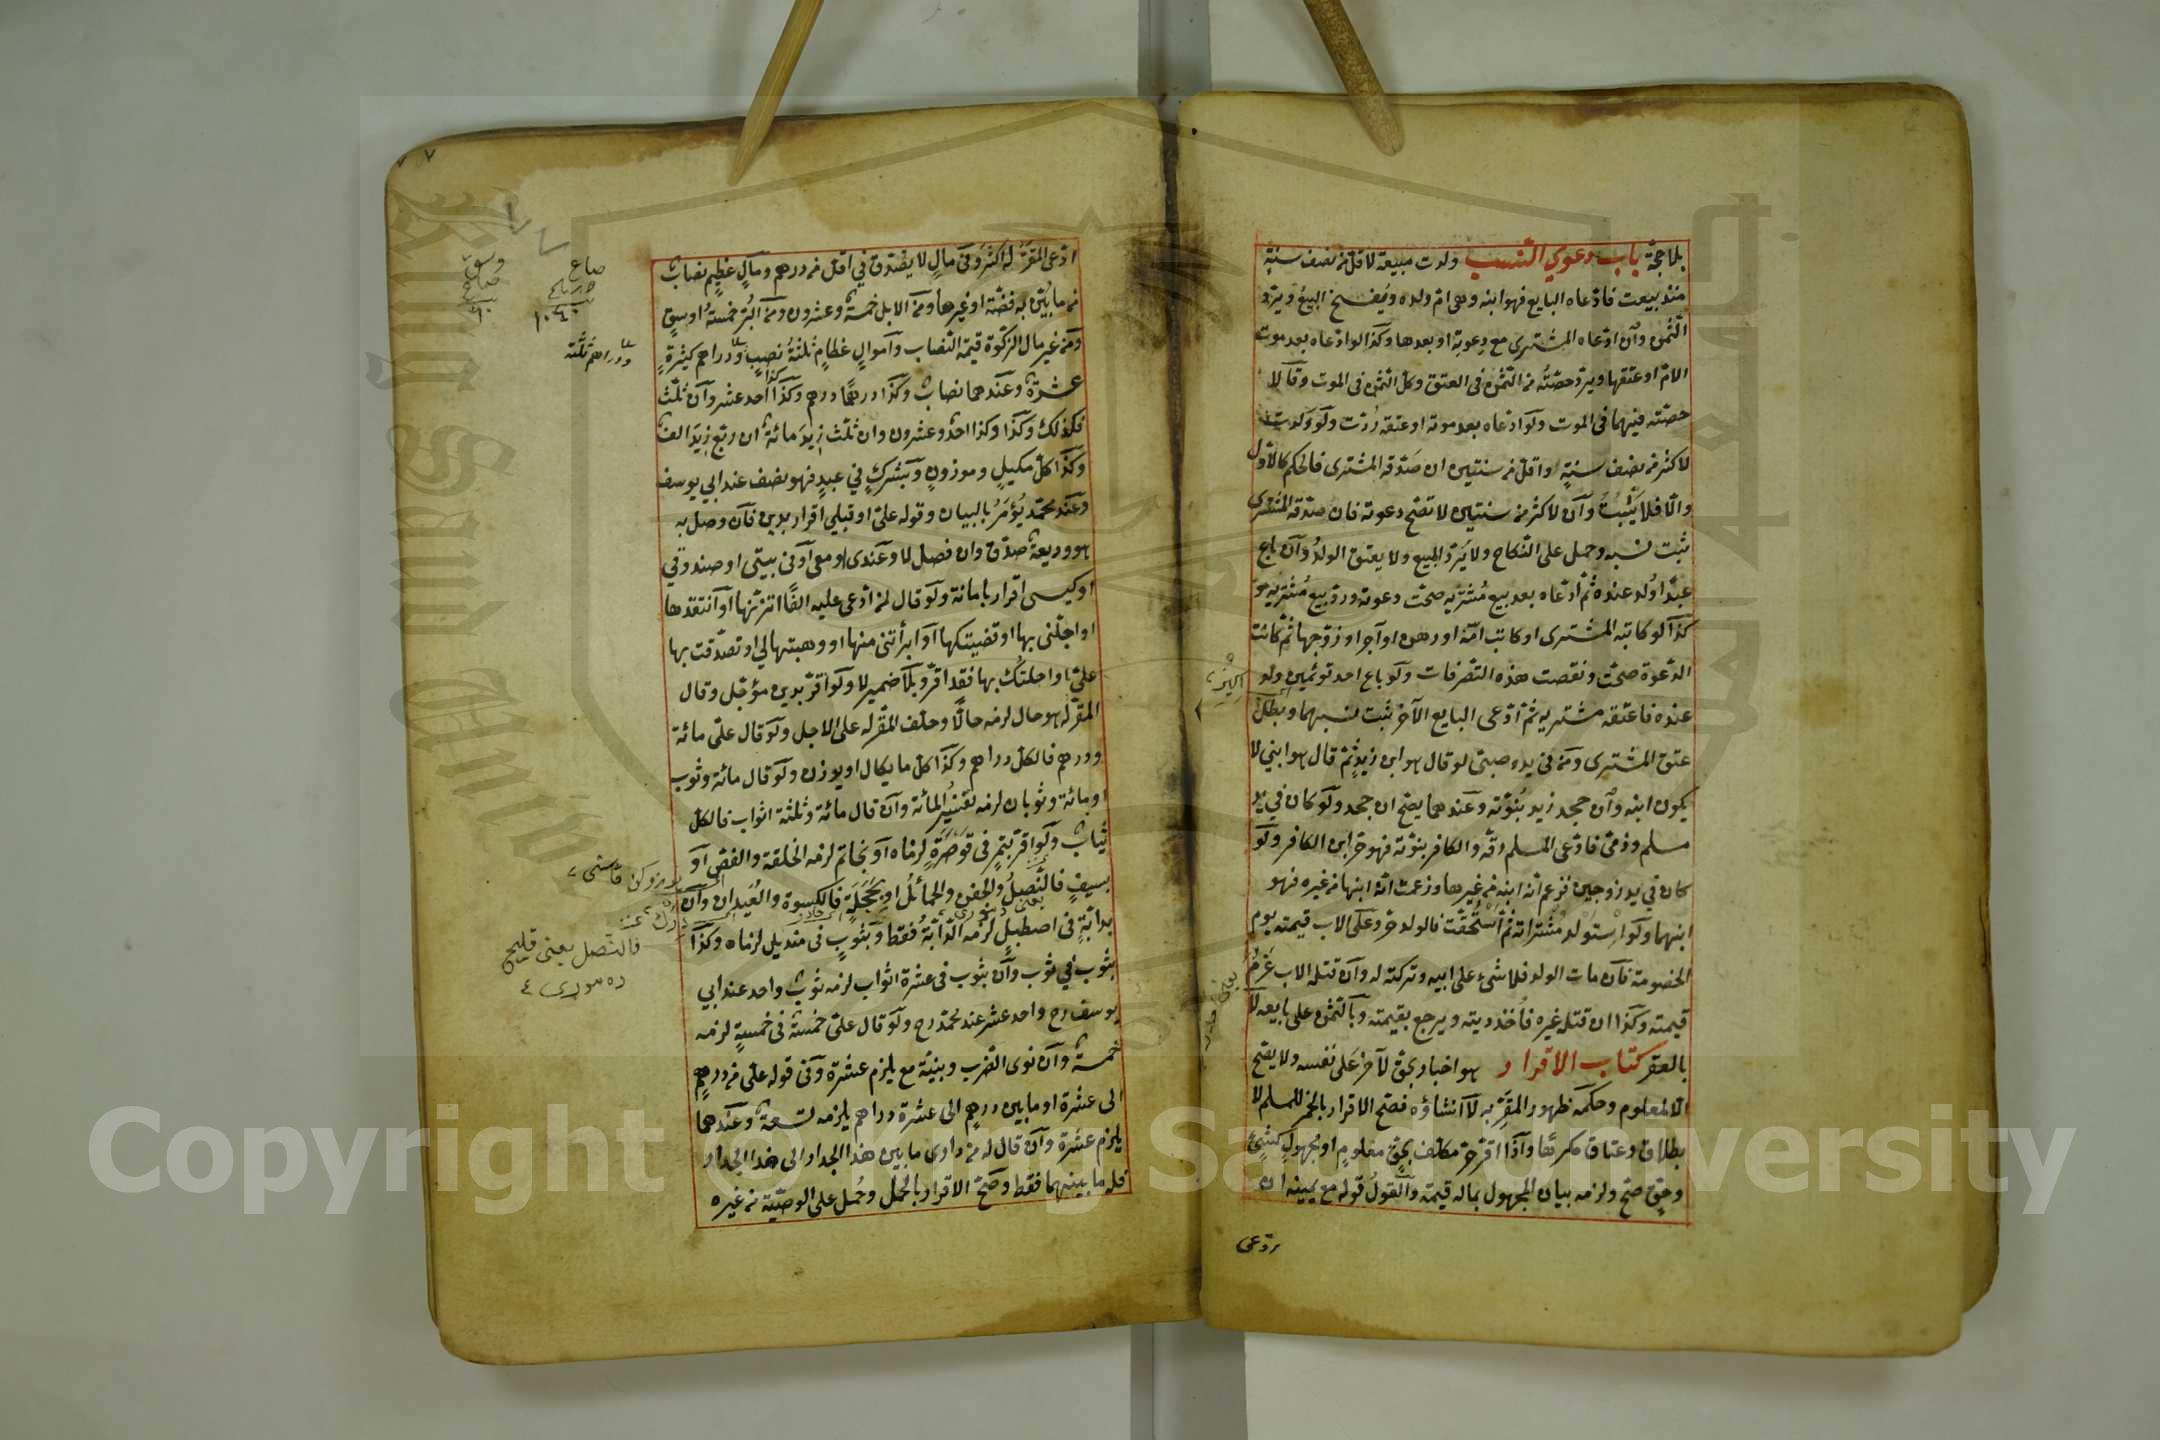 بلا حجة باب دعوي النسب ولدت مبيعة لاقل من نصف سنة
منذ بيعت فادعاه البايع فهو ابنه وهي ام ولده ويفسخ البيع ويرد
الثمن وان ادعاه المشتري مع دعوته او بعدها وكذا لو ادعاه بعد موت
الام او عتقها ويرد حصته من الثمن في العتق وكل الثمن في الموت وقالا
حصته فيهما في الموت ولو ادعاه بعد موته او عتقه ردت ولو ولدت
لاكثر من نصف سنة او اقل من سنتين ان صدقه المشتري فالحكم كالاول
والا فلا يثبت وان لاكثر من سنتين لا تصح دعوته فان صدقه المشتري
ثبت نسبه وحمل على النكاح ولا يرد المبيع ولا يعتق الولد وان باع
عبدا ولد عنده ثم ادعاه بعد بيع مشتريه صحت دعوته ورد بيع مشتريه و
كذا لو كاتبه المشتري او كاتب امه او رهن او آجر او زوجها ثم كانت
الدعوة صحت ونقصت هذه التصرفات ولو باع احد توئمين ولد
عنده فاعتقه مشتريه ثم ادعى البايع الآخر ثبت نسبهما وبطل
عتق المشتري ومن في يده صبي لو قال هو ابن زيد ثم قال هو ابني لا
يكون ابنه وان جحد زيد بنوته وعندهما يصح ان جحد ولو كان في يد
مسلم وذمي فادعى المسلم رقه والكافر بنوته فهو حر ابن الكافر ولو
كان في يد زوجين فزعم انه ابنه من غيرها وزعمت انه ابنها من غيره فهو
ابنهما ولو استولد مشتراته ثم استحقت فالولد حر وعلى الاب قيمته يوم
الخصومة فان مات الولد فلا شيء على ابيه وتركته له وان قتله الاب غرم
قيمته وكذا ان قتله غيره فاخذ ديته ويرجع بقيمته وبالثمن على بايعه لا
بالعقر كتاب الاقرار هو اخبار بحق لآخر على نفسه ولا يصح
الا لمعلوم وحكمه ظهور المقر به لا انشاؤه فصح الاقرار بالخمر للمسلم لا
بطلاق وعتاق مكرها واذا اقر حر مكلف بحق معلوم او مجهول كشئ
وحق صح ولزمه بيان المجهول بماله قيمة والقول قوله مع يمينه ان
ادعى المقر له اكثر وفي مال لا يصدق في اقل من درهم ومال عظيم نصاب
مما بين به فضة او غيرها ومن الابل خمسة وعشرون ومن البر خمسة اوسق
ومن غير مال الزكوة قيمة النصاب واموال عظام ثلثة نصب ودراهم كثيرة
عشرة وعندهما نصاب وكذا درهما درهم وكذا كذا احد عشر وان ثلث
فكذلك وكذا وكذا احد وعشرون وان ثلث زيد مائة ان ربع زيد الف
وكذا كل مكيل وموزون وبشرك في عبد فهو نصف عند ابي يوسف
وعند محمد يؤمر بالبيان وقوله علي او قبلي اقرار بدين فان وصل به
هو وديعة صدق وان فصل لا وعندي او معي او في بيتي او صندوقي
او كيسي اقرار بامانة ولو قال لمن ادعى عليه الفا اتزنها او انتقدها
او اجلني بها او قضيتكها او ابرأتني منها او وهبتها لي او تصدقت بها
علي او احلتك بها فقد اقر وبلا ضمير لا ولو اقر بدين مؤجل وقال
المقر له هو حال لزمه حالا وحلف المقر له على الاجل ولو قال علي مائة
ودرهم فالكل دراهم وكذا كل ما يكال او يوزن ولو قال مائة وثوب
او مائة وثوبان لزمه تفسير المائة وان قال مائة وثلثة اثواب فالكل
ثياب ولو اقر بتمر في قوصرة لزماه او بخاتم لزمه الحلقة والفص او
بسيف فالنصل والجفن والحمائل او بحجلة فالكسوة والعيدان وان
بدابة في اصطبل لزمه الدابة فقط وبثوب في منديل لزماه وكذا
بثوب في ثوب وان بثوب في عشرة اثواب لزمه ثوب واحد عند ابي
يوسف رح واحد عشر عند محمد رح ولو قال علي خمسة في خمسة لزمه
خمسة وان نوى الضرب وبنية مع يلزم عشرة وفي قوله علي من درهم
الى عشرة او ما بين درهم الى عشرة دراهم يلزمه تسعة وعندهما
يلزم عشرة وان قال له من داري ما بين هذا الجدار الى هذا الجدار
فله ما بينهما فقط وصح الاقرار بالحمل وحمل على الوصية من غيره
صاع
وسق
صاع
١٠٤٠
٦٠
ودراهم ثلثة
فالنصل يعني قليج
Copyright © King Saud University